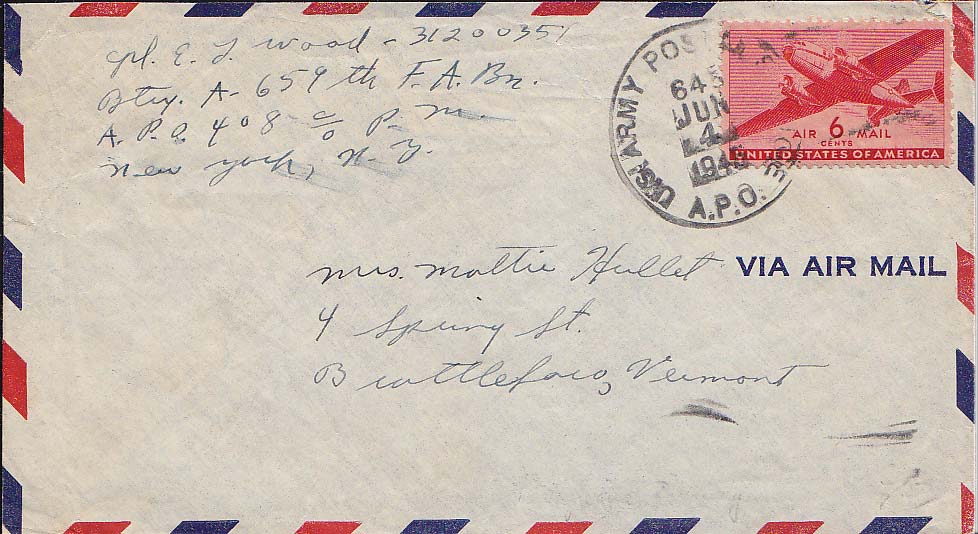 Cpl. E. L. Wood - 31200351
Btry. A- 659th F.A. Bn.
A.P.O. 408 c/o P.M.
New York, N.Y.
U.S. ARMY POSTAL
JUN
4
A.P.O.
AIR 6 MAIL
CENTS
UNITED STATES OF AMERICA
VIA AIR MAIL
Mrs. Mattie Hullet
4 Spring St.
Brattleboro, Vermont